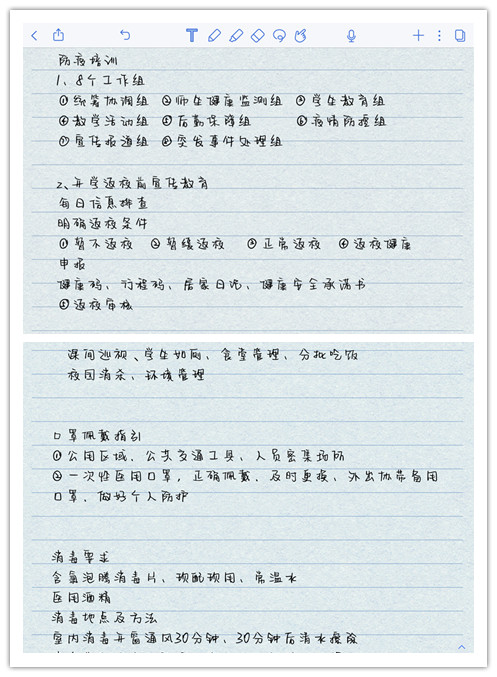 防疫培训
1、8个工作组
①统筹协调组 ②师生健康监测组 ③学生教育组
④教学活动组 ⑤后勤保障组 ⑥疫情防控组
⑦宣传报道组 ⑧突发事件处理组
2、开学返校前宣传教育
每日信息排查
明确返校条件
①暂不返校 ②暂缓返校 ③正常返校 ④返校健康
申报
健康码、行程码、居家日记、健康安全承诺书
⑤返校审核
课间巡视、学生如厕、食堂管理、分批吃饭
校园消杀、环境管理
口罩佩戴指引
①公用区域、公共交通工具、人员密集场所
②一次性医用口罩，正确佩戴、及时更换、外出协带备用
口罩，做好个人防护
消毒要求
含氯泡腾消毒片、现配现用、常温水
医用酒精
消毒地点及方法
室内消毒开窗通风30分钟、30分钟后清水擦除